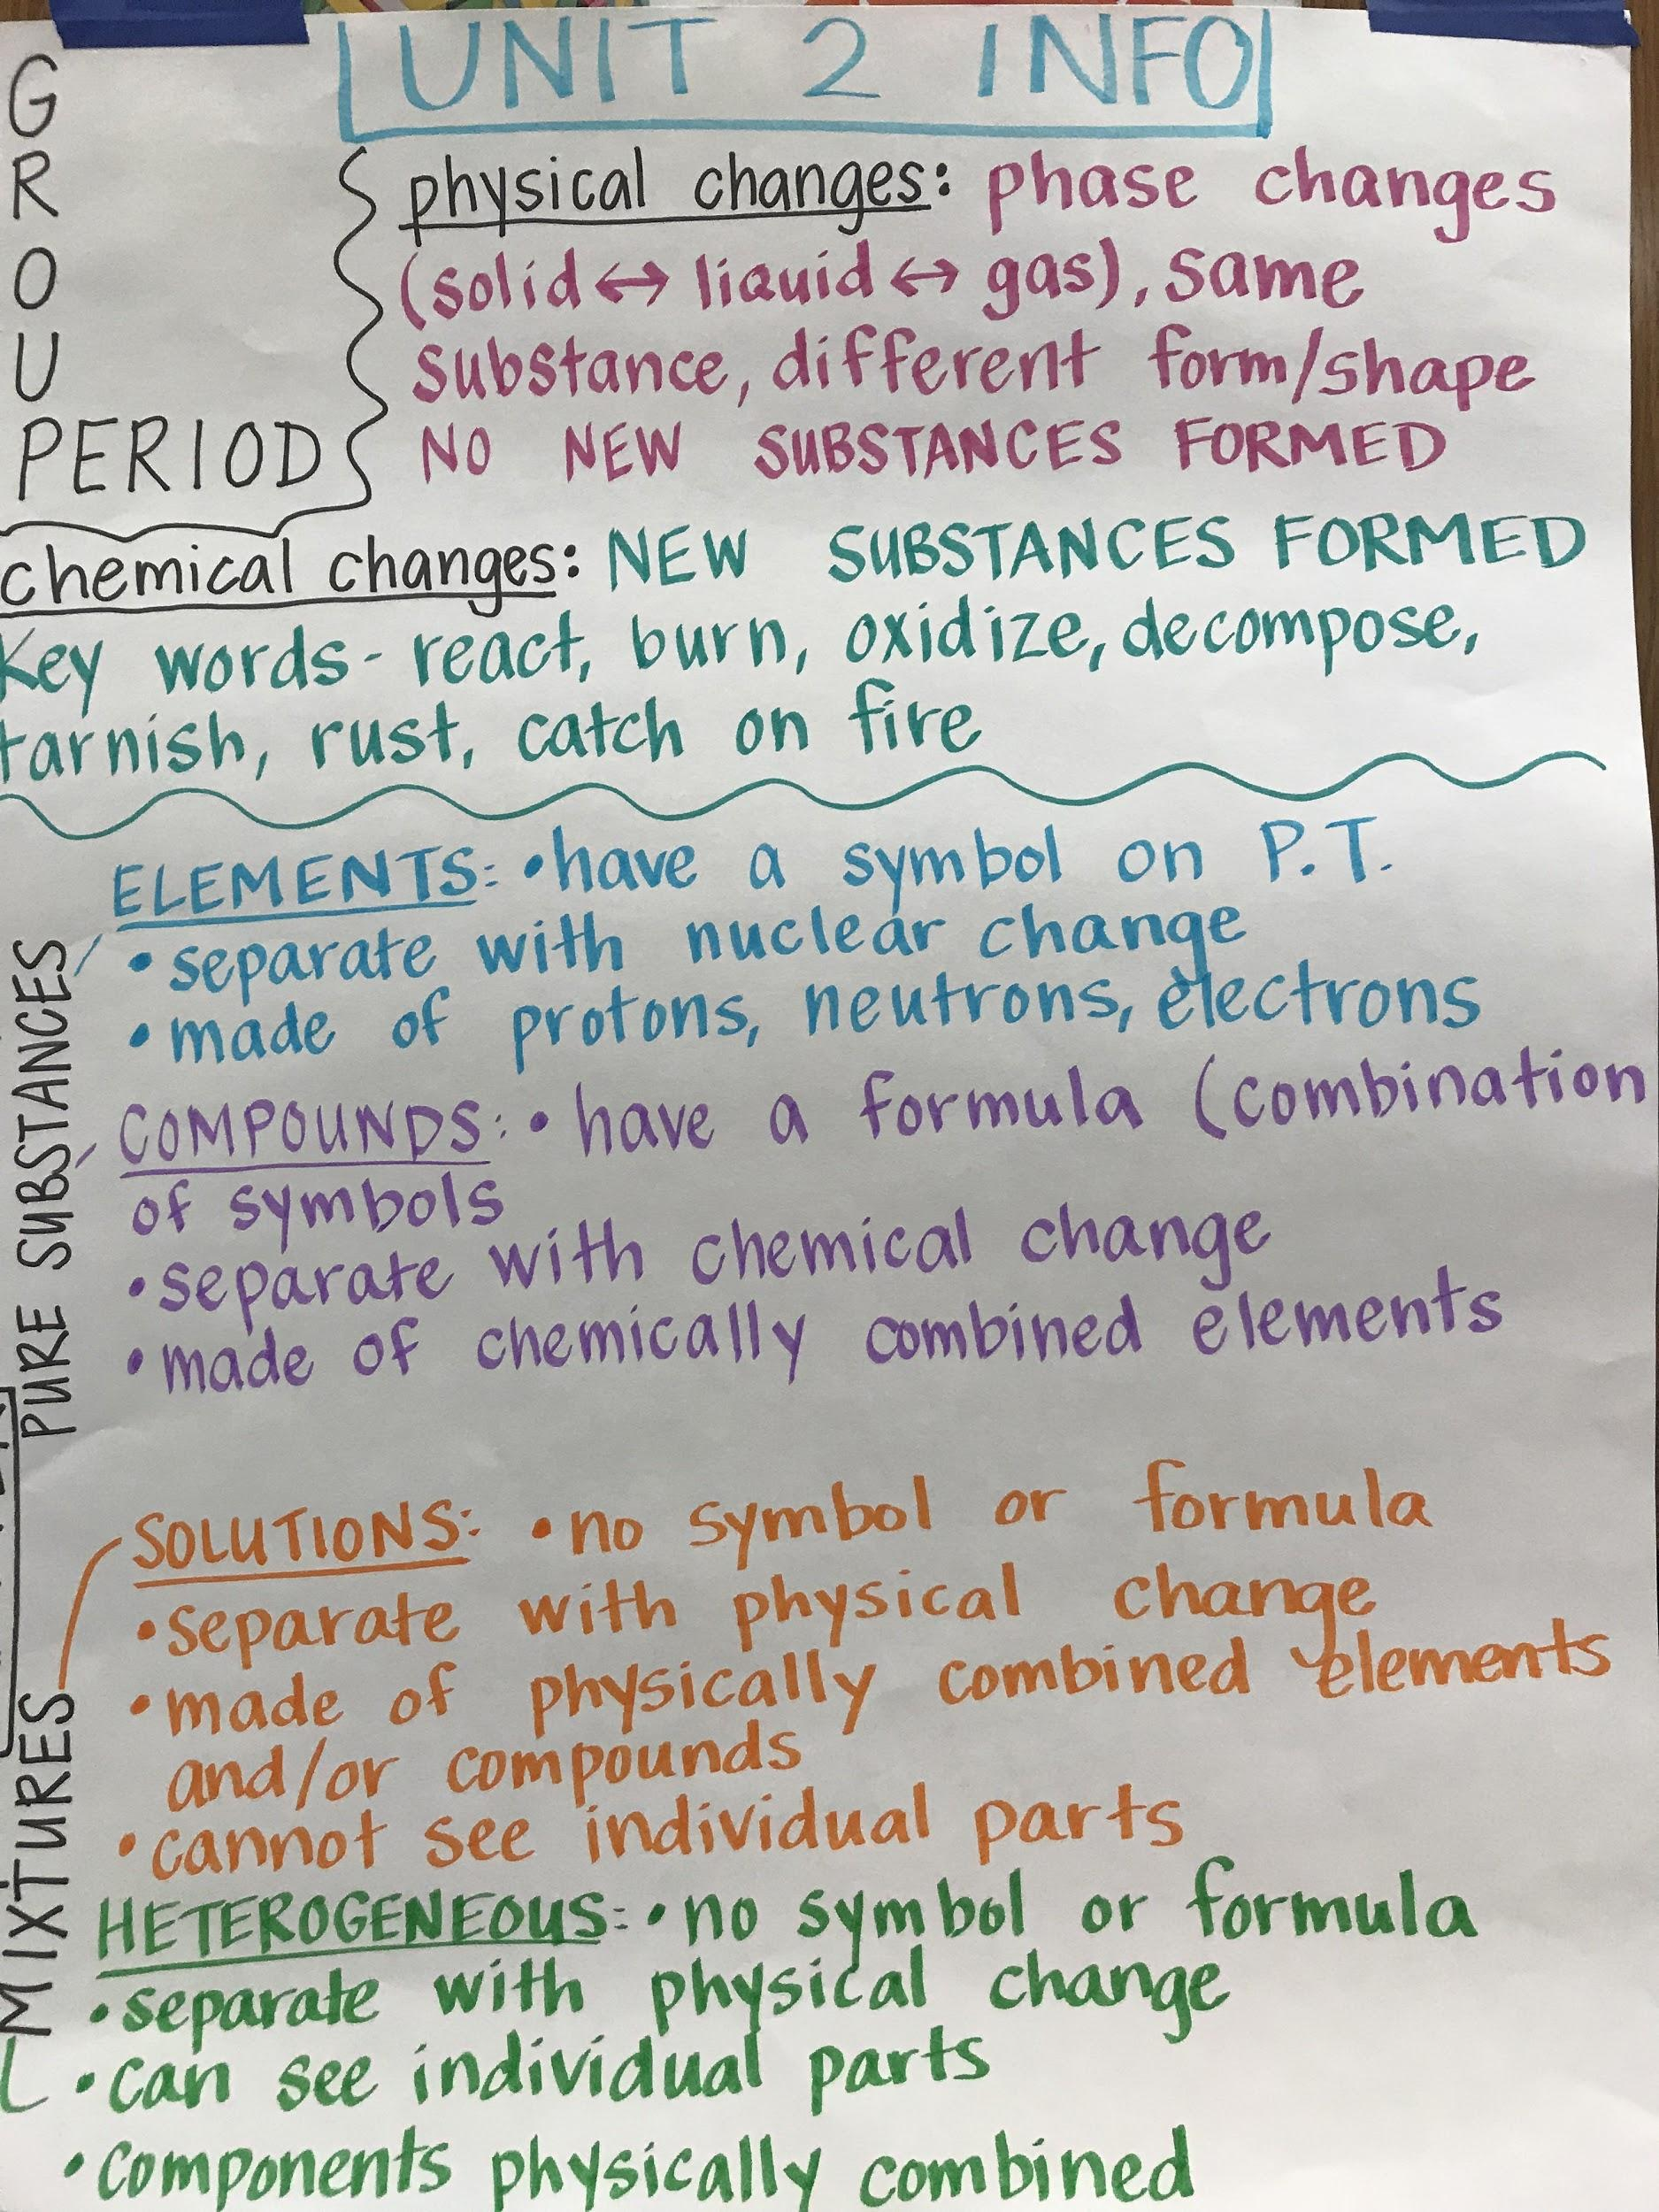 UNIT 2 INFO
G
R
O
U
PERIOD
physical changes: phase changes
(solid ↔ liquid ↔ gas), same
substance, different form/shape
NO NEW SUBSTANCES FORMED
chemical changes: NEW SUBSTANCES FORMED
Key words - react, burn, oxidize, decompose,
tarnish, rust, catch on fire
PURE SUBSTANCES
ELEMENTS: • have a symbol on P.T.
• separate with nuclear change
• made of protons, neutrons, electrons
COMPOUNDS: • have a formula (combination
of symbols
• separate with chemical change
• made of chemically combined elements
MIXTURES
SOLUTIONS: • no symbol or formula
• separate with physical change
• made of physically combined elements
and/or compounds
• cannot see individual parts
HETEROGENEOUS: • no symbol or formula
• separate with physical change
• can see individual parts
• components physically combined